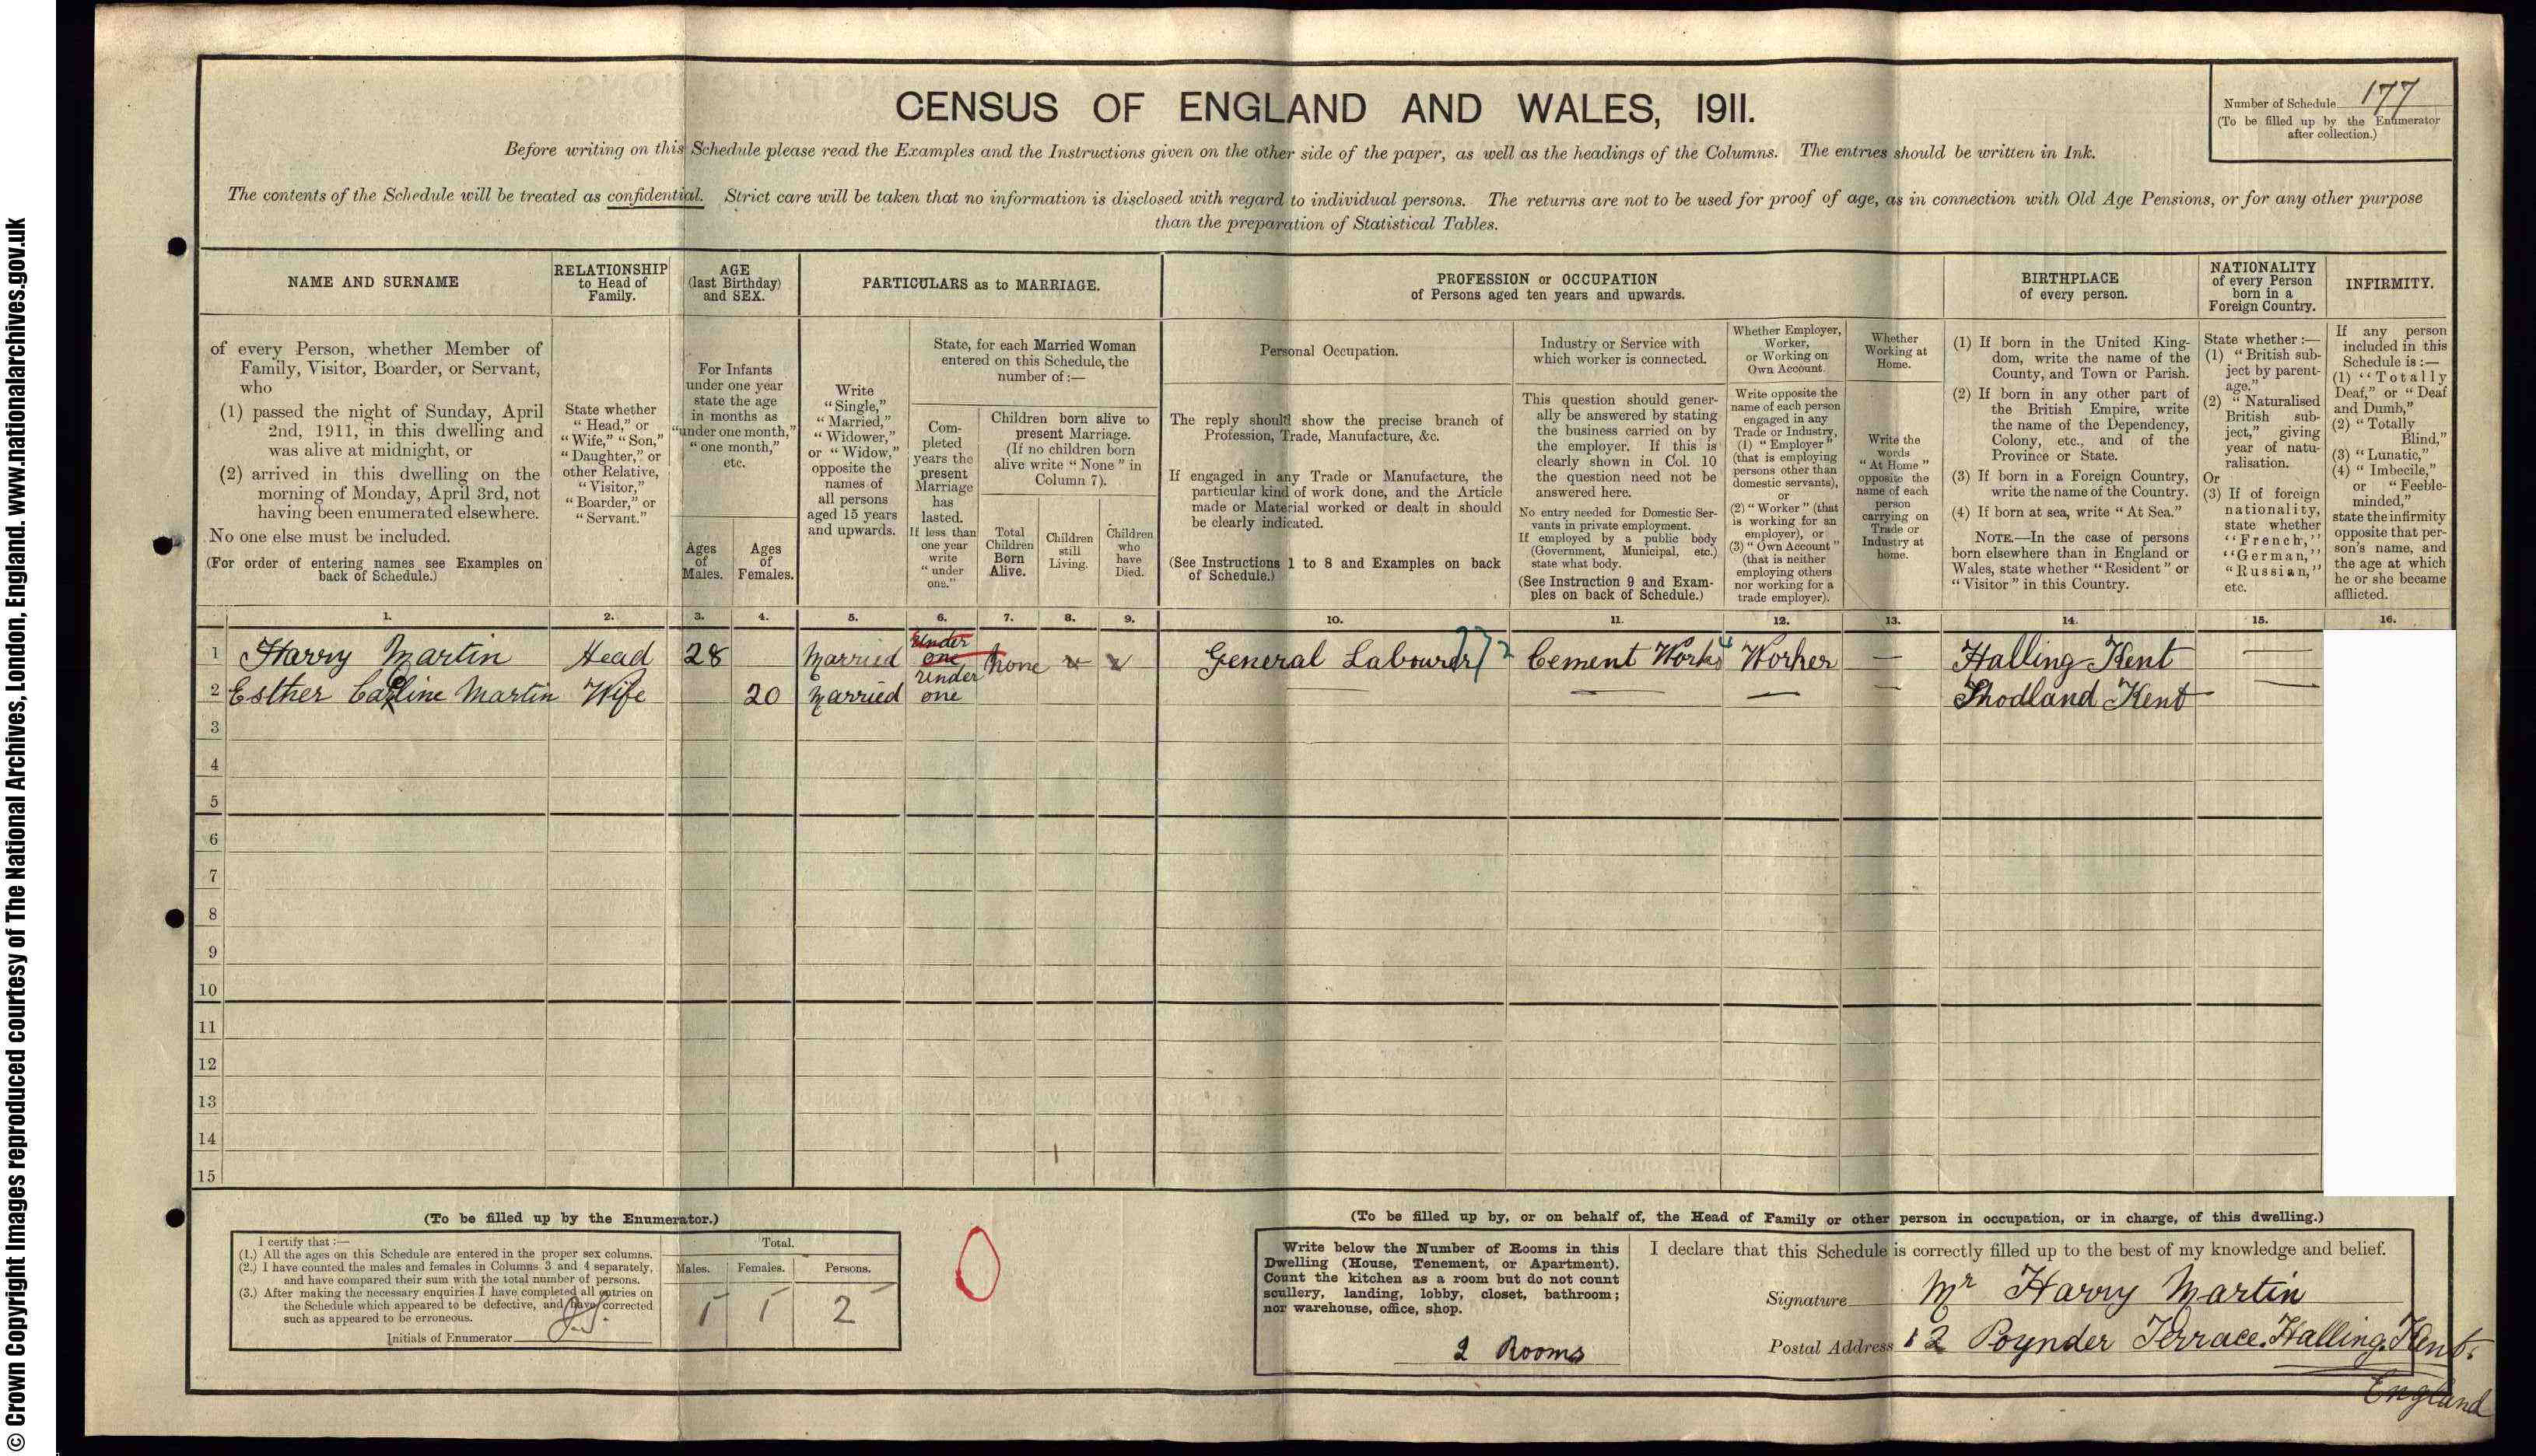 © Crown Copyright Images reproduced courtesy of The National Archives, London, England. www.nationalarchives.gov.uk
CENSUS OF ENGLAND AND WALES, 1911.
Number of Schedule 177
(To be filled up by the Enumerator
after collection.)
Before writing on this Schedule please read the Examples and the Instructions given on the other side of the paper, as well as the headings of the Columns. The entries should be written in Ink.
The contents of the Schedule will be treated as confidential. Strict care will be taken that no information is disclosed with regard to individual persons. The returns are not to be used for proof of age, as in connection with Old Age Pensions, or for any other purpose
than the preparation of Statistical Tables.
NAME AND SURNAME
of every Person, whether Member of
Family, Visitor, Boarder, or Servant,
who
(1) passed the night of Sunday, April
2nd, 1911, in this dwelling and
was alive at midnight, or
(2) arrived in this dwelling on the
morning of Monday, April 3rd, not
having been enumerated elsewhere.
No one else must be included.
(For order of entering names see Examples on
back of Schedule.)
RELATIONSHIP
to Head of
Family.
State whether
"Head," or
"Wife," "Son,"
"Daughter," or
other Relative,
"Visitor,"
"Boarder," or
"Servant."
AGE
(last Birthday)
and SEX.
For Infants
under one year
state the age
in months as
"under one month,"
"one month,"
etc.
Ages
of
Males.
Ages
of
Females.
PARTICULARS as to MARRIAGE.
Write
"Single,"
"Married,"
"Widower,"
or "Widow,"
opposite the
names of
all persons
aged 15 years
and upwards.
State, for each Married Woman
entered on this Schedule, the
number of:—
Com-
pleted
years the
present
Marriage
has
lasted.
If less than
one year
write
"under
one."
Children born alive to
present Marriage.
(If no children born
alive write "None" in
Column 7).
Total
Children
Born
Alive.
Children
still
Living.
Children
who
have
Died.
PROFESSION or OCCUPATION
of Persons aged ten years and upwards.
Personal Occupation.
The reply should show the precise branch of
Profession, Trade, Manufacture, &c.
If engaged in any Trade or Manufacture, the
particular kind of work done, and the Article
made or Material worked or dealt in should
be clearly indicated.
(See Instructions 1 to 8 and Examples on back
of Schedule.)
Industry or Service with
which worker is connected.
This question should gener-
ally be answered by stating
the business carried on by
the employer. If this is
clearly shown in Col. 10
the question need not be
answered here.
No entry needed for Domestic Ser-
vants in private employment.
If employed by a public body
(Government, Municipal, etc.)
state what body.
(See Instruction 9 and Exam-
ples on back of Schedule.)
Whether Employer,
Worker,
or Working on
Own Account.
Write opposite the
name of each person
engaged in any
Trade or Industry,
(1) "Employer"
(that is employing
persons other than
domestic servants),
or
(2) "Worker" (that
is working for an
employer), or
(3) "Own Account"
(that is neither
employing others
nor working for a
trade employer).
Whether
Working at
Home.
Write the
words
"At Home"
opposite the
name of each
person
carrying on
Trade or
Industry at
home.
BIRTHPLACE
of every person.
(1) If born in the United King-
dom, write the name of the
County, and Town or Parish.
(2) If born in any other part of
the British Empire, write
the name of the Dependency,
Colony, etc., and of the
Province or State.
(3) If born in a Foreign Country,
write the name of the Country.
(4) If born at sea, write "At Sea."
NOTE.—In the case of persons
born elsewhere than in England or
Wales, state whether "Resident" or
"Visitor" in this Country.
NATIONALITY
of every Person
born in a
Foreign Country.
State whether:—
(1) "British sub-
ject by parent-
age."
(2) "Naturalised
British sub-
ject," giving
year of natu-
ralisation.
Or
(3) If of foreign
nationality,
state whether
"French,"
"German,"
"Russian,"
etc.
INFIRMITY.
If any person
included in this
Schedule is:—
(1) "Totally
Deaf," or "Deaf
and Dumb,"
(2) "Totally
Blind,"
(3) "Lunatic,"
(4) "Imbecile,"
or "Feeble-
minded,"
state the infirmity
opposite that per-
son's name, and
the age at which
he or she became
afflicted.
1. 2. 3. 4. 5. 6. 7. 8. 9. 10. 11. 12. 13. 14. 15. 16.
1 Harry Martin Head 28 Married Under one None General Labourer Cement Works Worker — Halling Kent —
2 Esther Caroline Martin Wife 20 Married Under one — — — — Snodland Kent —
3
4
5
6
7
8
9
10
11
12
13
14
15
(To be filled up by the Enumerator.)
I certify that:—
(1.) All the ages on this Schedule are entered in the proper sex columns.
(2.) I have counted the males and females in Columns 3 and 4 separately,
and have compared their sum with the total number of persons.
(3.) After making the necessary enquiries I have completed all entries on
the Schedule which appeared to be defective, and have corrected
such as appeared to be erroneous.
Initials of Enumerator
Total.
Males. Females. Persons.
1 1 2
0
(To be filled up by, or on behalf of, the Head of Family or other person in occupation, or in charge, of this dwelling.)
Write below the Number of Rooms in this
Dwelling (House, Tenement, or Apartment).
Count the kitchen as a room but do not count
scullery, landing, lobby, closet, bathroom;
nor warehouse, office, shop.
2 Rooms
I declare that this Schedule is correctly filled up to the best of my knowledge and belief.
Signature Mr Harry Martin
Postal Address 12 Poynder Terrace. Halling. Kent.
England